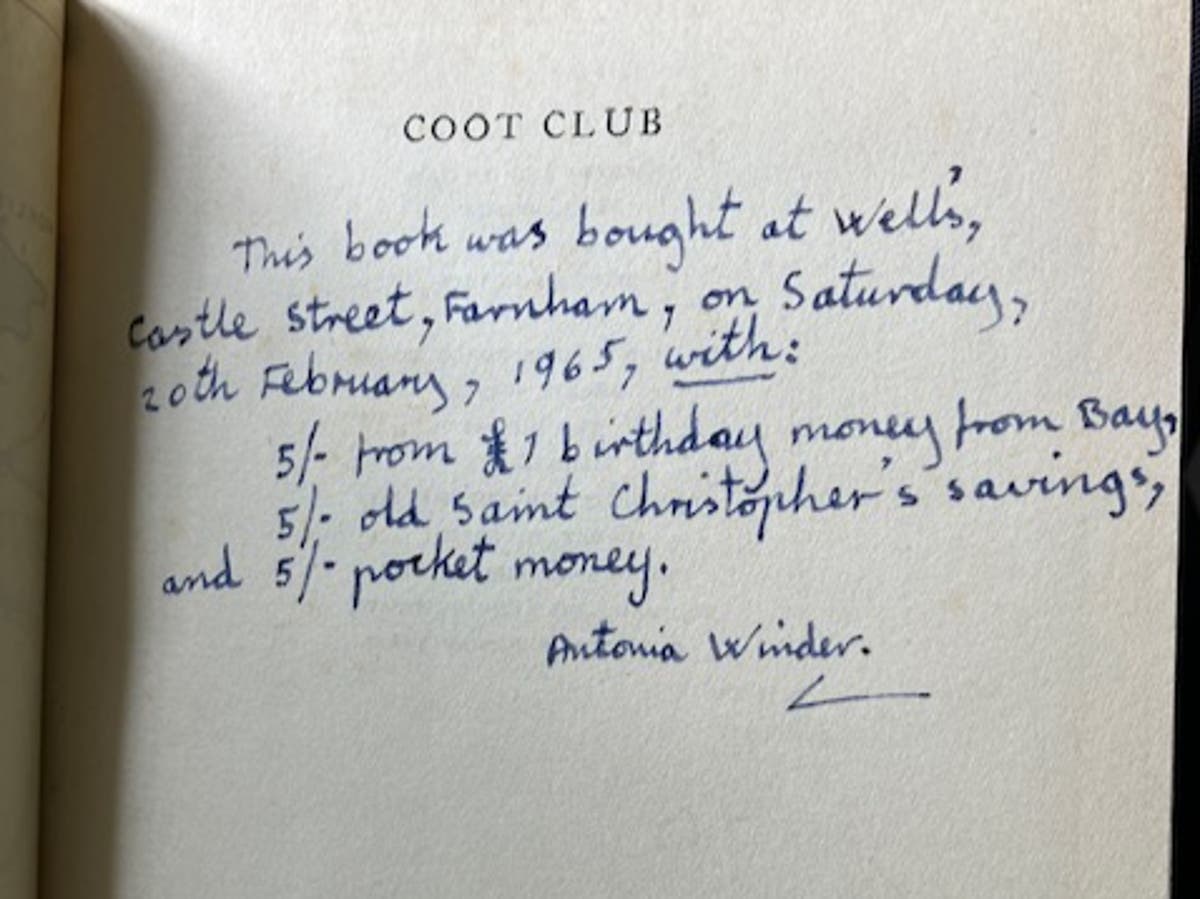 COOT CLUB
This book was bought at Wells',
Castle Street, Farnham, on Saturday,
20th February, 1965, with:
5/- from £1 birthday money from Bay,
5/- old Saint Christopher's savings,
and 5/- pocket money.
Antonia Winder.